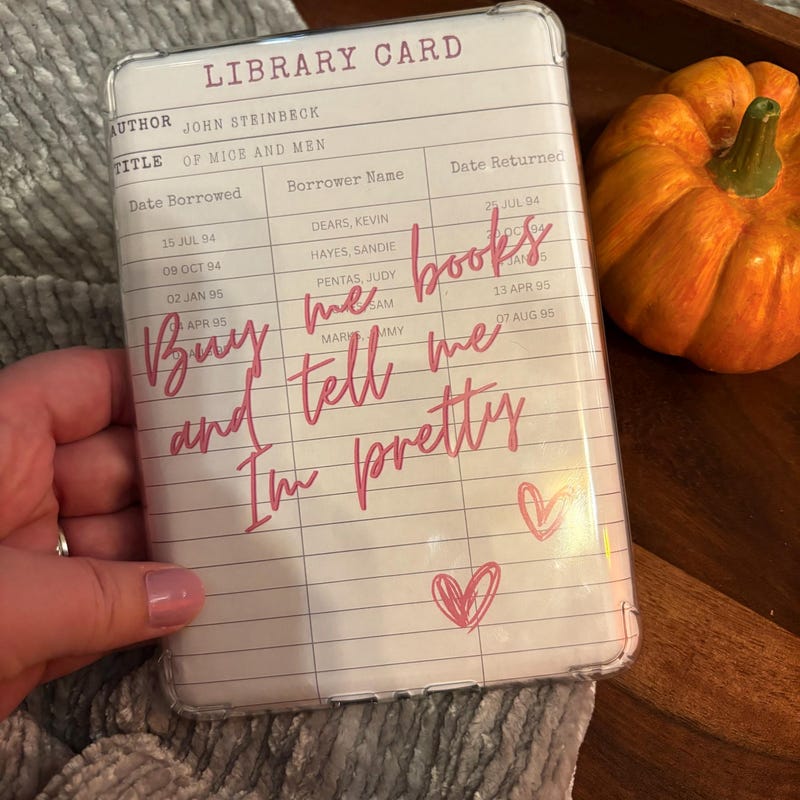 LIBRARY CARD
AUTHOR JOHN STEINBECK
TITLE OF MICE AND MEN
Date Borrowed Borrower Name Date Returned
15 JUL 94 DEARS, KEVIN 25 JUL 94
09 OCT 94 HAYES, SANDIE 20 OCT 94
02 JAN 95 PENTAS, JUDY JAN 95
04 APR 95 SAM 13 APR 95
07 AUG 95
Buy me books
and tell me
Im pretty